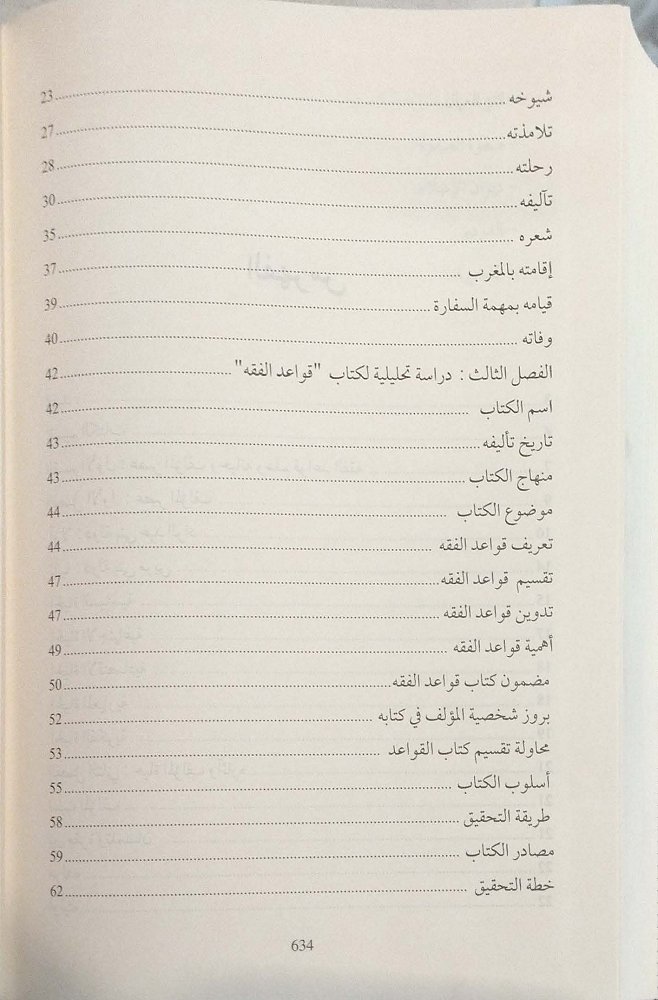 شيوخه 23
تلامذته 27
رحلته 28
تآليفه 30
شعره 35
إقامته بالمغرب 37
قيامه بمهمة السفارة 39
وفاته 40
الفصل الثالث : دراسة تحليلية لكتاب "قواعد الفقه" 42
اسم الكتاب 42
تاريخ تأليفه 43
منهاج الكتاب 43
موضوع الكتاب 44
تعريف قواعد الفقه 44
تقسيم قواعد الفقه 47
تدوين قواعد الفقه 47
أهمية قواعد الفقه 49
مضمون كتاب قواعد الفقه 50
بروز شخصية المؤلف في كتابه 52
محاولة تقسيم كتاب القواعد 53
أسلوب الكتاب 55
طريقة التحقيق 58
مصادر الكتاب 59
خطة التحقيق 62
634